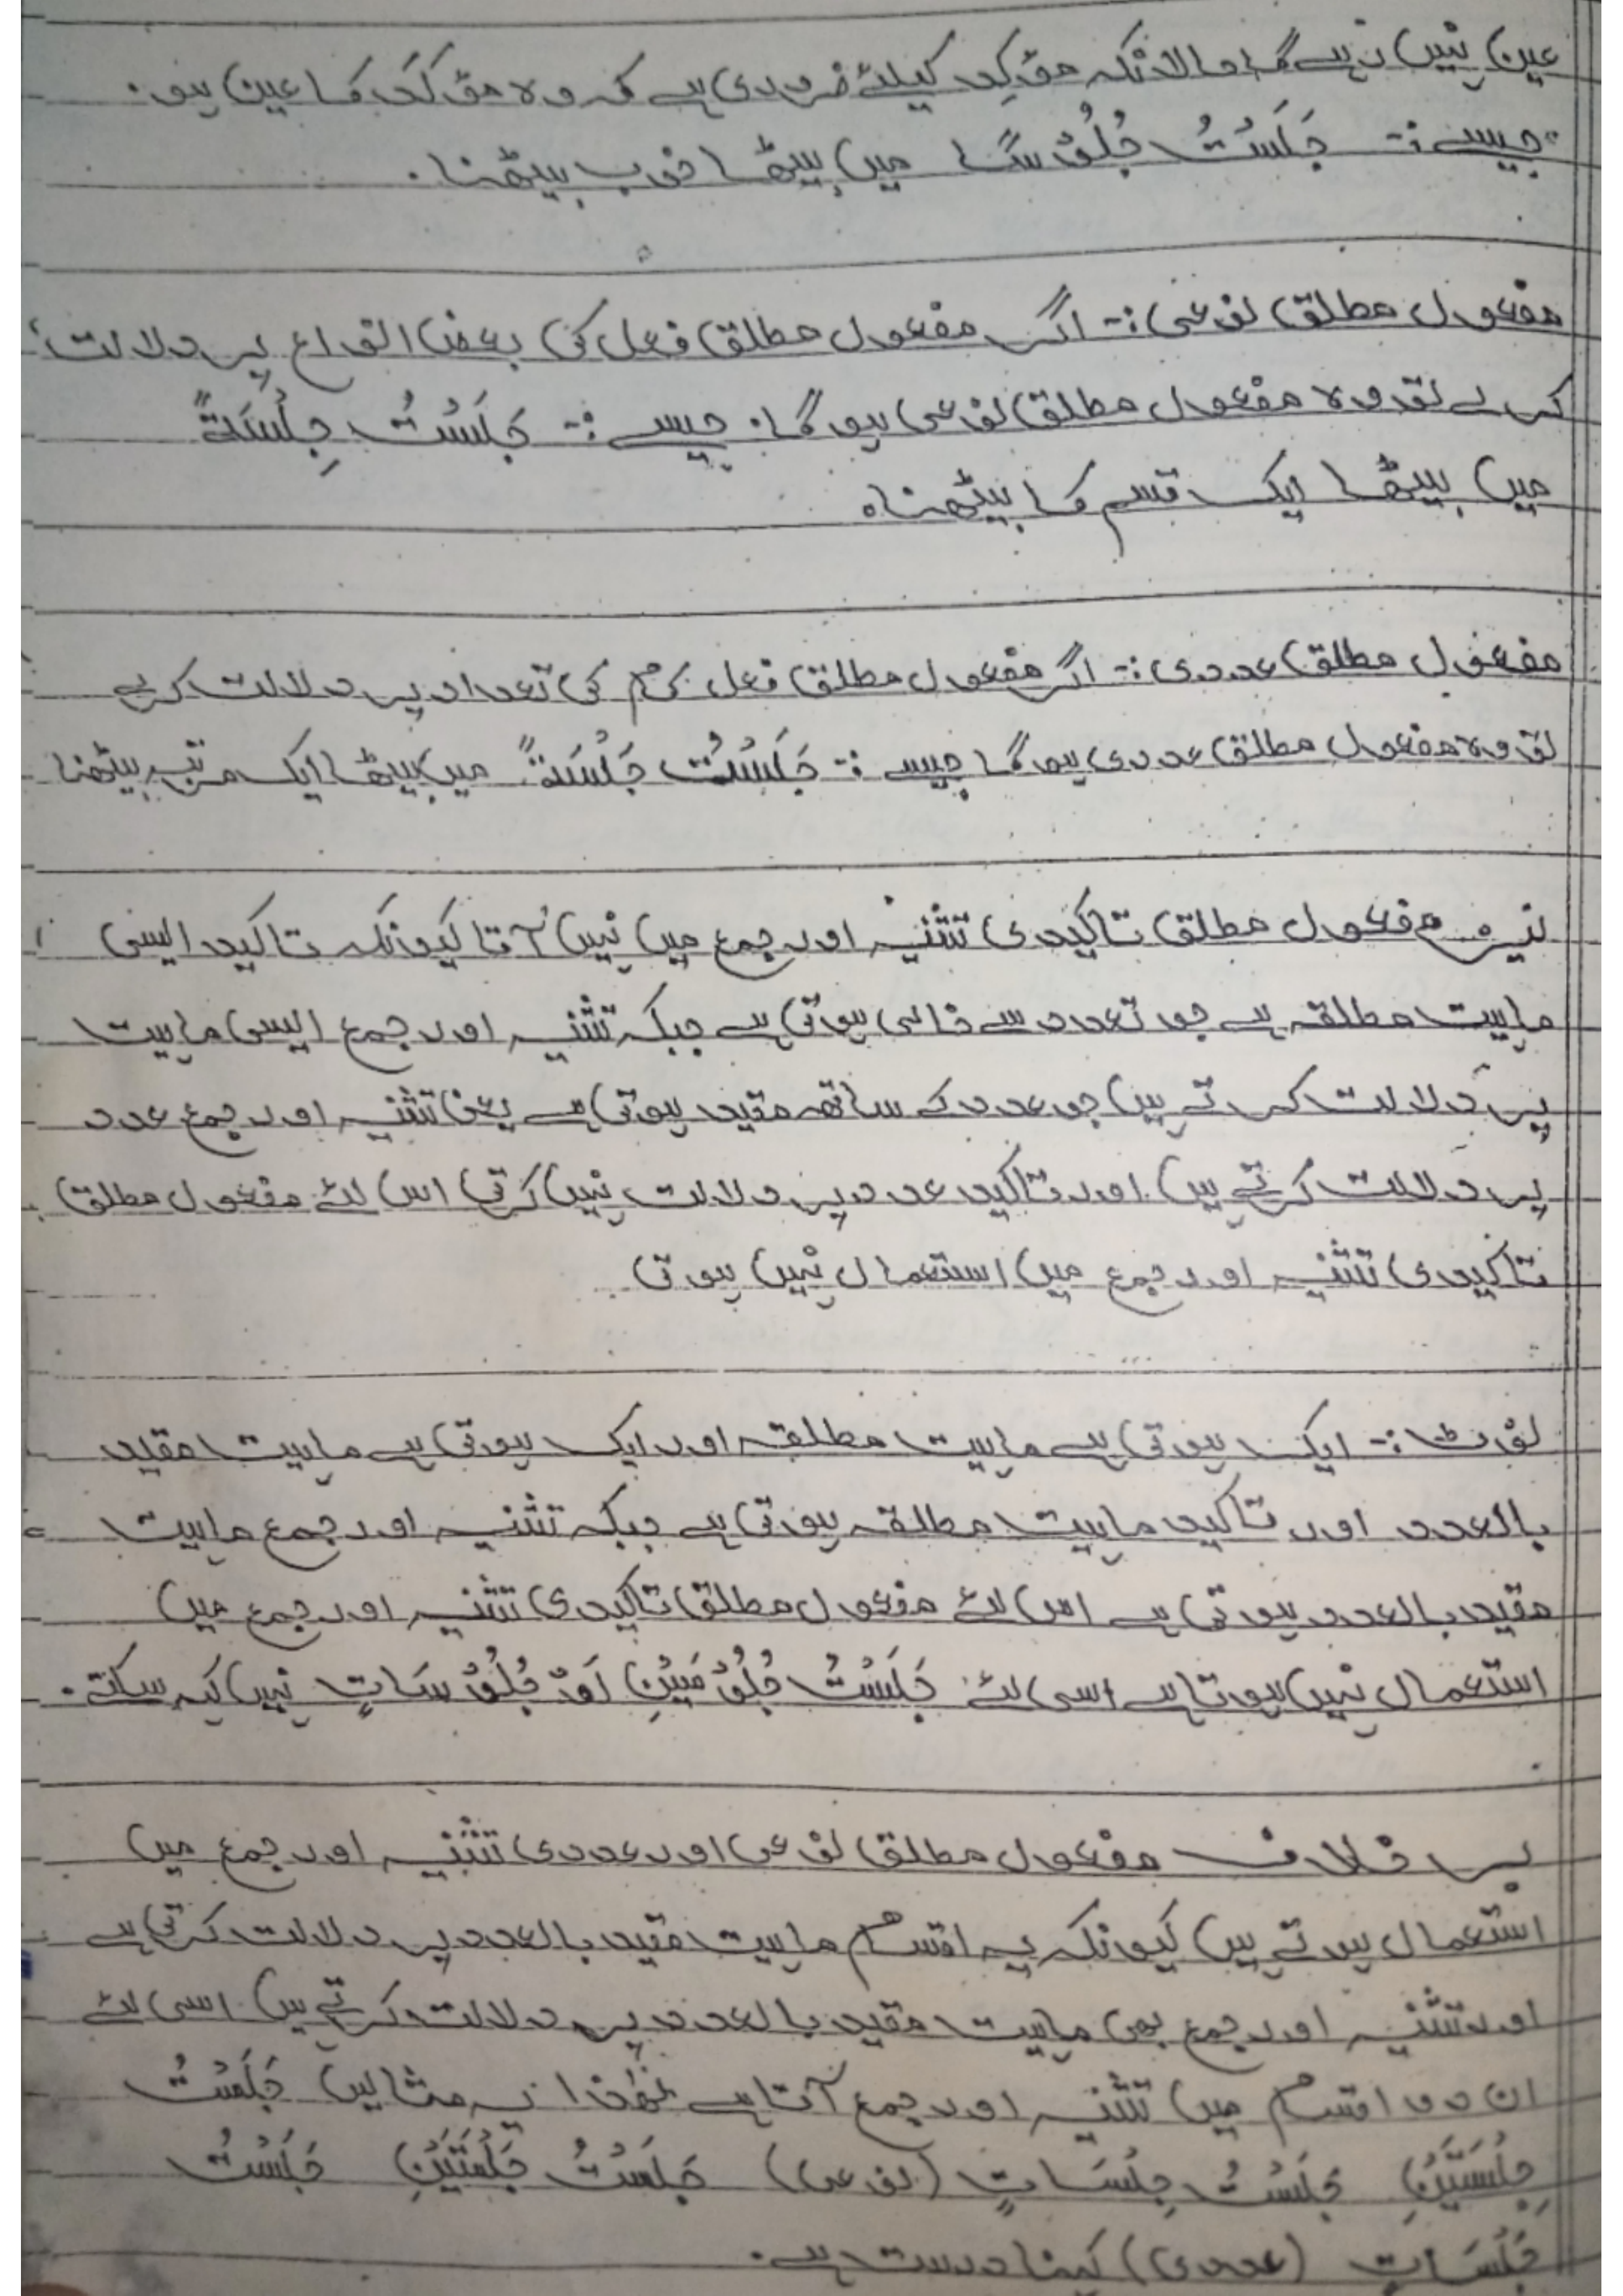 عین نہیں رہے گا حالانکہ مؤکِد کیلئے ضروری ہے کہ وہ مؤکَد کا عین ہو۔
جیسے :- جَلَسْتُ جُلُوْسًا میں بیٹھا خوب بیٹھنا۔
مفعول مطلق نوعی :- اگر مفعول مطلق فعل کی بعض انواع پر دلالت
کرے تو وہ مفعول مطلق نوعی ہوگا۔ جیسے :- جَلَسْتُ جِلْسَةً
میں بیٹھا ایک قسم کا بیٹھنا۔
مفعول مطلق عددی :- اگر مفعول مطلق فعل کی تعداد پر دلالت کرے
تو وہ مفعول مطلق عددی ہوگا جیسے :- جَلَسْتُ جَلْسَةً میں بیٹھا ایک مرتبہ بیٹھنا
نیز مفعول مطلق تاکیدی تثنیہ اور جمع میں نہیں آتا کیونکہ تاکید ایسی
ماہیت مطلقہ ہے جو تعدد سے خالی ہوتی ہے جبکہ تثنیہ اور جمع ایسی ماہیت
پر دلالت کرتے ہیں جو عدد کے ساتھ مقید ہوتی ہے یعنی تثنیہ اور جمع عدد
پر دلالت کرتے ہیں اور تاکید عدد پر دلالت نہیں کرتی اس لئے مفعول مطلق
تاکیدی تثنیہ اور جمع میں استعمال نہیں ہوتی
نوٹ :- ایک ہوتی ہے ماہیت مطلقہ اور ایک ہوتی ہے ماہیت مقید
بالعدد اور تاکید ماہیت مطلقہ ہوتی ہے جبکہ تثنیہ اور جمع ماہیت
مقید بالعدد ہوتی ہے اس لئے مفعول مطلق تاکیدی تثنیہ اور جمع میں
استعمال نہیں ہوتا ہے اسی لئے جَلَسْتُ جُلُوْسَیْنِ اَوْ جُلُوْسَاتٍ نہیں کہہ سکتے۔
بر خلاف مفعول مطلق نوعی اور عددی تثنیہ اور جمع میں
استعمال ہوتے ہیں کیونکہ یہ اقسام ماہیت مقید بالعدد پر دلالت کرتی ہے
اور تثنیہ اور جمع بھی ماہیت مقید بالعدد پر دلالت کرتے ہیں اسی لئے
ان دو اقسام میں تثنیہ اور جمع آتا ہے لھٰذا یہ مثالیں جَلَسْتُ
جِلْسَتَیْنِ جَلَسْتُ جِلْسَاتٍ (نوعی) جَلَسْتُ جَلْسَتَیْنِ جَلَسْتُ
جَلْسَاتٍ (عددی) کہنا درست ہے۔